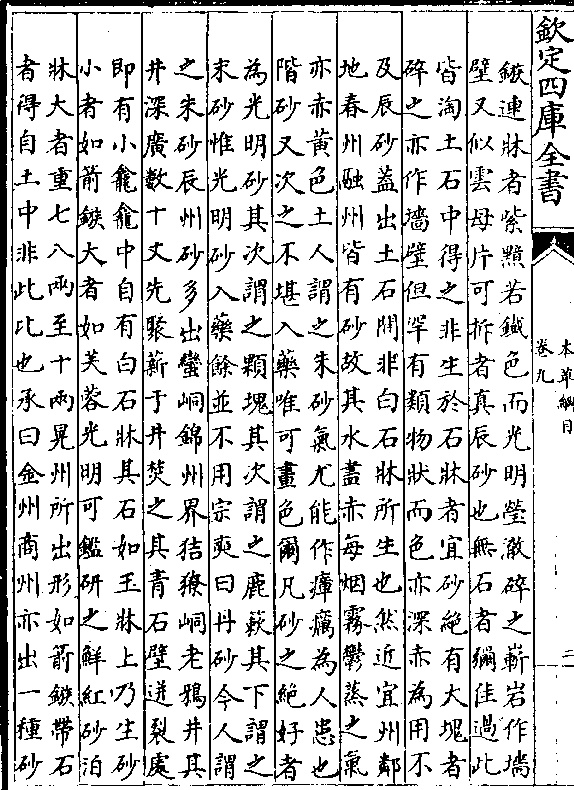 欽定四庫全書
本草綱目
卷九
二
鏃連牀者紫黯若鐵色而光明瑩澈碎之嶄岩作墻
壁又似雲母片可拆者真辰砂也無石者彌佳過此
皆淘土石中得之非生於石牀者宜砂絶有大塊者
碎之亦作墻壁但罕有類物狀而色亦深赤為用不
及辰砂葢出土石閒非白石牀所生也然近宜州鄰
地春州融州皆有砂故其水盡赤每烟霧鬱蒸之氣
亦赤黃色土人謂之朱砂氣尤能作瘴癘為人患也
階砂又次之不堪入藥唯可畫色爾凡砂之絶好者
為光明砂其次謂之顆塊其次謂之鹿蔌其下謂之
末砂惟光明砂入藥餘並不用宗奭曰丹砂今人謂
之朱砂辰州砂多出蠻峒錦州界狤獠峒老鴉井其
井深廣數十丈先聚薪于井焚之其青石壁迸裂處
即有小龕龕中自有白石牀其石如玉牀上乃生砂
小者如箭鏃大者如芙蓉光明可鑑研之鮮紅砂洎
牀大者重七八兩至十兩晃州所出形如箭鏃帶石
者得自土中非此比也承曰金州商州亦出一種砂